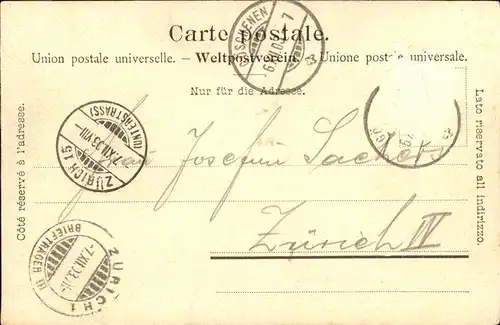 Carte postale.
Union postale universelle. – Weltpostverein. – Unione postale universale.
Nur für die Adresse.
Côté réservé à l'adresse.
Lato riservato all indirizzo.
GÖSCHENEN
ZÜRICH 15
(UNTERSTRASS)
7.XII.03.VIII–
Frau Josefine
Zürich IV
ZÜRICH 1
BRIEFTRÄGER